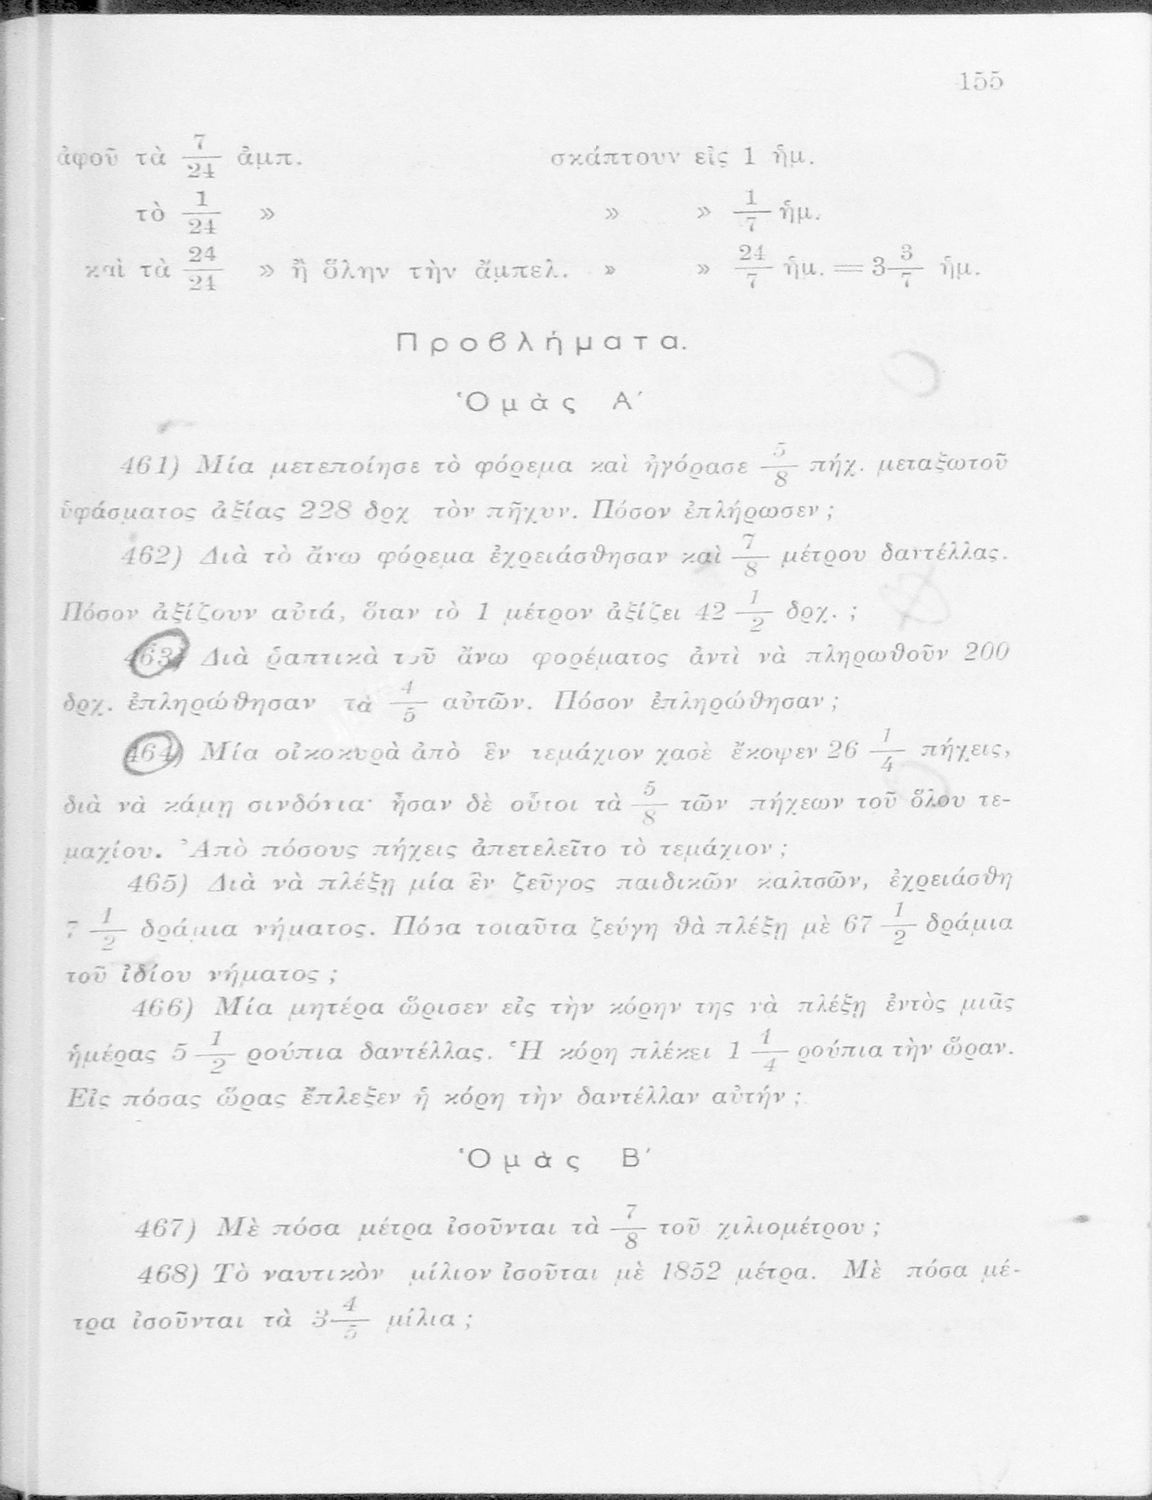 155
ἀφοῦ τὰ 7/24 ἀμπ. σκάπτουν εἰς 1 ἡμ.
τὸ 1/24 » » » 1/7 ἡμ.
καὶ τὰ 24/24 » ἢ ὅλην τὴν ἄμπελ. » » 24/7 ἡμ. = 3 3/7 ἡμ.
Προβλήματα.
Ὁμὰς Α΄
461) Μία μετεποίησε τὸ φόρεμα καὶ ἠγόρασε 5/8 πήχ. μεταξωτοῦ
ὑφάσματος ἀξίας 228 δρχ τὸν πῆχυν. Πόσον ἐπλήρωσεν ;
462) Διὰ τὸ ἄνω φόρεμα ἐχρειάσθησαν καὶ 7/8 μέτρου δαντέλλας.
Πόσον ἀξίζουν αὐτά, ὅταν τὸ 1 μέτρον ἀξίζει 42 1/2 δρχ. ;
463) Διὰ ῥαπτικὰ τοῦ ἄνω φορέματος ἀντὶ νὰ πληρωθοῦν 200
δρχ. ἐπληρώθησαν τὰ 4/5 αὐτῶν. Πόσον ἐπληρώθησαν ;
464) Μία οἰκοκυρὰ ἀπὸ ἓν τεμάχιον χασὲ ἔκοψεν 26 1/4 πήχεις,
διὰ νὰ κάμῃ σινδόνια· ἦσαν δὲ οὗτοι τὰ 5/8 τῶν πήχεων τοῦ ὅλου τε-
μαχίου. Ἀπὸ πόσους πήχεις ἀπετελεῖτο τὸ τεμάχιον ;
465) Διὰ νὰ πλέξῃ μία ἓν ζεῦγος παιδικῶν καλτσῶν, ἐχρειάσθη
7 1/2 δράμια νήματος. Πόσα τοιαῦτα ζεύγη θὰ πλέξῃ μὲ 67 1/2 δράμια
τοῦ ἰδίου νήματος ;
466) Μία μητέρα ὥρισεν εἰς τὴν κόρην της νὰ πλέξῃ ἐντὸς μιᾶς
ἡμέρας 5 1/2 ρούπια δαντέλλας. Ἡ κόρη πλέκει 1 1/4 ρούπια τὴν ὥραν.
Εἰς πόσας ὥρας ἔπλεξεν ἡ κόρη τὴν δαντέλλαν αὐτήν ;
Ὁμὰς Β΄
467) Μὲ πόσα μέτρα ἰσοῦνται τὰ 7/8 τοῦ χιλιομέτρου ;
468) Τὸ ναυτικὸν μίλιον ἰσοῦται μὲ 1852 μέτρα. Μὲ πόσα μέ-
τρα ἰσοῦνται τὰ 3 4/5 μίλια ;